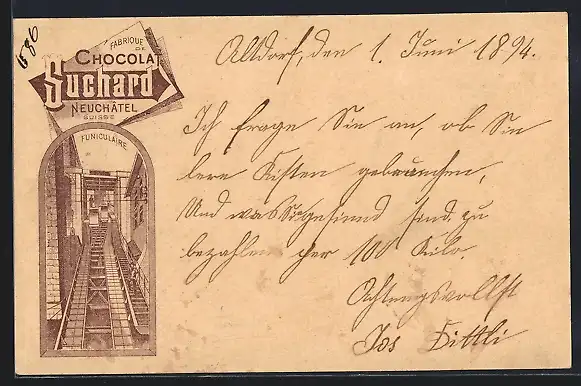 686
FABRIQUE
DE
CHOCOLAT
Suchard
NEUCHÂTEL
SUISSE
FUNICULAIRE
Altdorf, den 1. Juni 1894.
Ich frage Sie an, ob Sie
lere Kisten gebrauchen,
Und was Sie gesinnd sind zu
bezahlen per 100 Kilo.
Achtungsvollst
Jos Dittli